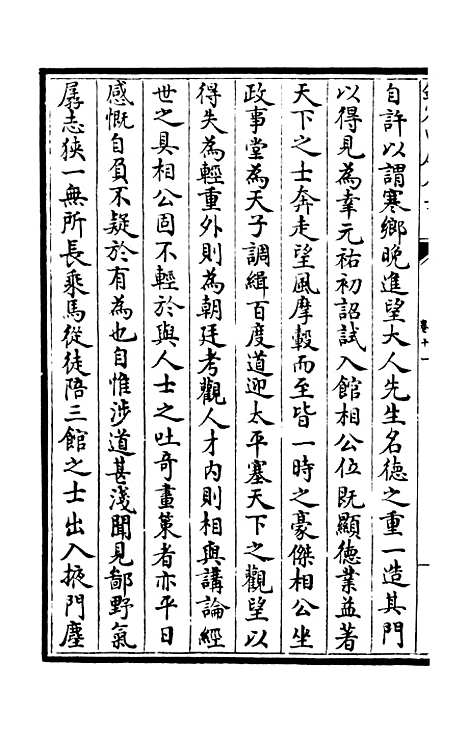 卷十一
自許以謂寒鄉晚進望大人先生名德之重一造其門
以得見為幸元祐初詔試入館相公位既顯德業益著
天下之士奔走望風摩轂而至皆一時之豪傑相公坐
政事堂為天子調緝百度道迎太平塞天下之觀望以
得失為輕重外則為朝廷考觀人才内則相與講論經
世之具相公固不輕於與人士之吐奇畫策者亦平日
感慨自負不疑於有為也自惟涉道甚淺聞見鄙野氣
孱志狹一無所長乘馬從徒陪三館之士出入掖門塵